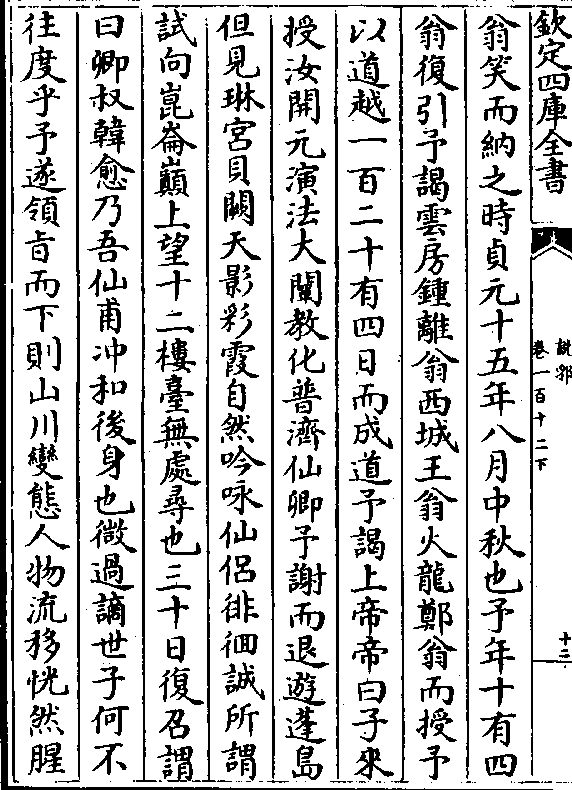 欽定四庫全書
說郛
卷一百十二下
十三
翁笑而納之時貞元十五年八月中秋也予年十有四
翁復引予謁雲房鍾離翁西城王翁火龍鄭翁而授予
以道越一百二十有四日而成道予謁上帝帝曰子來
授汝開元演法大闡教化普濟仙卿予謝而退遊蓬島
但見琳宮貝闕天影彩霞自然吟咏仙侶徘徊誠所謂
試向崑崙巔上望十二樓臺無處尋也三十日復召謂
曰卿叔韓愈乃吾仙甫冲和後身也微過謫世子何不
往度乎予遂領旨而下則山川變態人物流移恍然腥